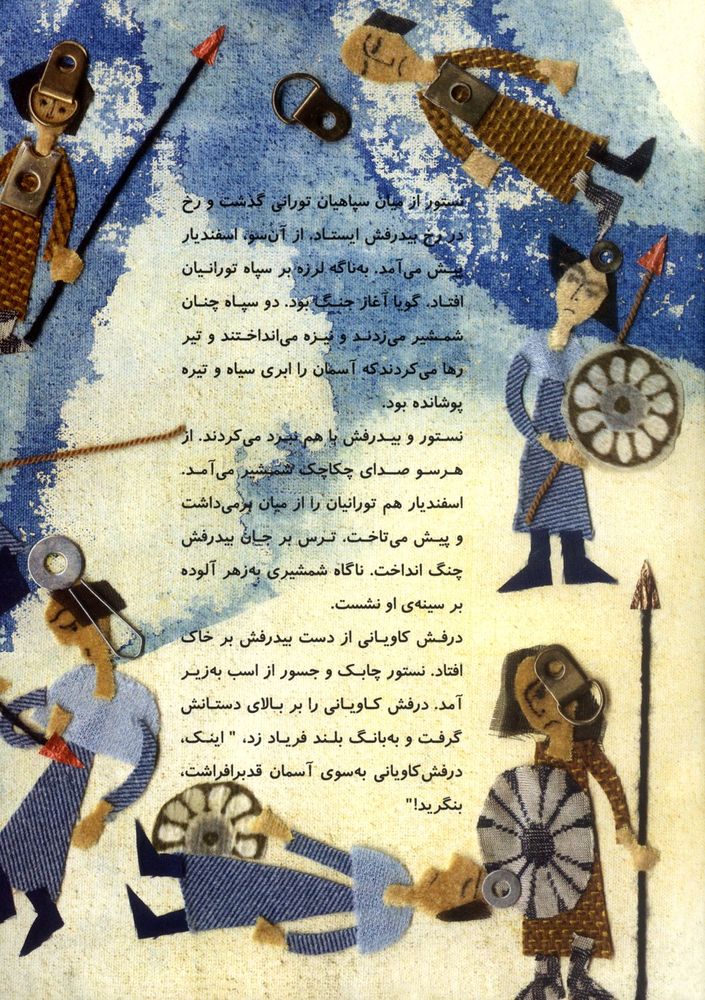 نستور از میان سپاهیان تورانی گذشت و رخ
در رخ بیدرفش ایستاد. از آن‌سو، اسفندیار
پیش می‌آمد. به‌ناگه لرزه بر سپاه تورانیان
افتاد. گویا آغاز جنگ بود. دو سپاه چنان
شمشیر می‌زدند و نیزه می‌انداختند و تیر
رها می‌کردندکه آسمان را ابری سیاه و تیره
پوشانده بود.
نستور و بیدرفش با هم نبرد می‌کردند. از
هرسو صدای چکاچک شمشیر می‌آمد.
اسفندیار هم تورانیان را از میان برمی‌داشت
و پیش می‌تاخت. ترس بر جان بیدرفش
چنگ انداخت. ناگاه شمشیری به‌زهر آلوده
بر سینه‌ی او نشست.
درفش کاویانی از دست بیدرفش بر خاک
افتاد. نستور چابک و جسور از اسب به‌زیر
آمد. درفش کاویانی را بر بالای دستانش
گرفت و به‌بانگ بلند فریاد زد، " اینک،
درفش‌کاویانی به‌سوی آسمان قدبرافراشت،
بنگرید!"